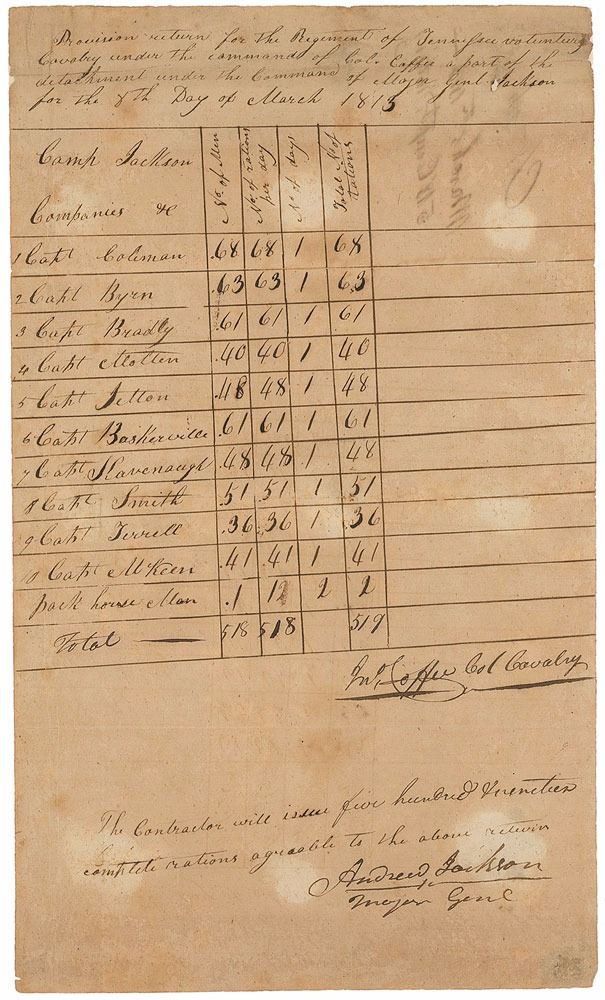 Provision return for the Regiment of Tennessee volunteer
Cavalry under the command of Colo. Coffee a part of the
detachment under the Command of Major Genl. Jackson
for the 8th Day of March 1813
Camp Jackson
Companies &c
No. of Men
No. of rations per day
No. of days
Total No. of rations
1 Capt Coleman .68 68 1 68
2 Capt Byrn .63 63 1 63
3 Capt Bradly .61 61 1 61
4 Capt Molten .40 40 1 40
5 Capt Jetton .48 48 1 48
6 Capt Baskerville .61 61 1 61
7 Capt Kavenaugh .48 48 .1 48
8 Capt Smith .51 .51 1 51
9 Capt Terrell .36 .36 1 .36
10 Capt McKeen .41 .41 1 41
pack house Man .1 1 2 2
Total 518 518 519
Jno. Coffee Col Cavalry
The Contractor will issue five hundred & nineteen
complete rations agreeable to the above return
Andrew Jackson
Major Genl